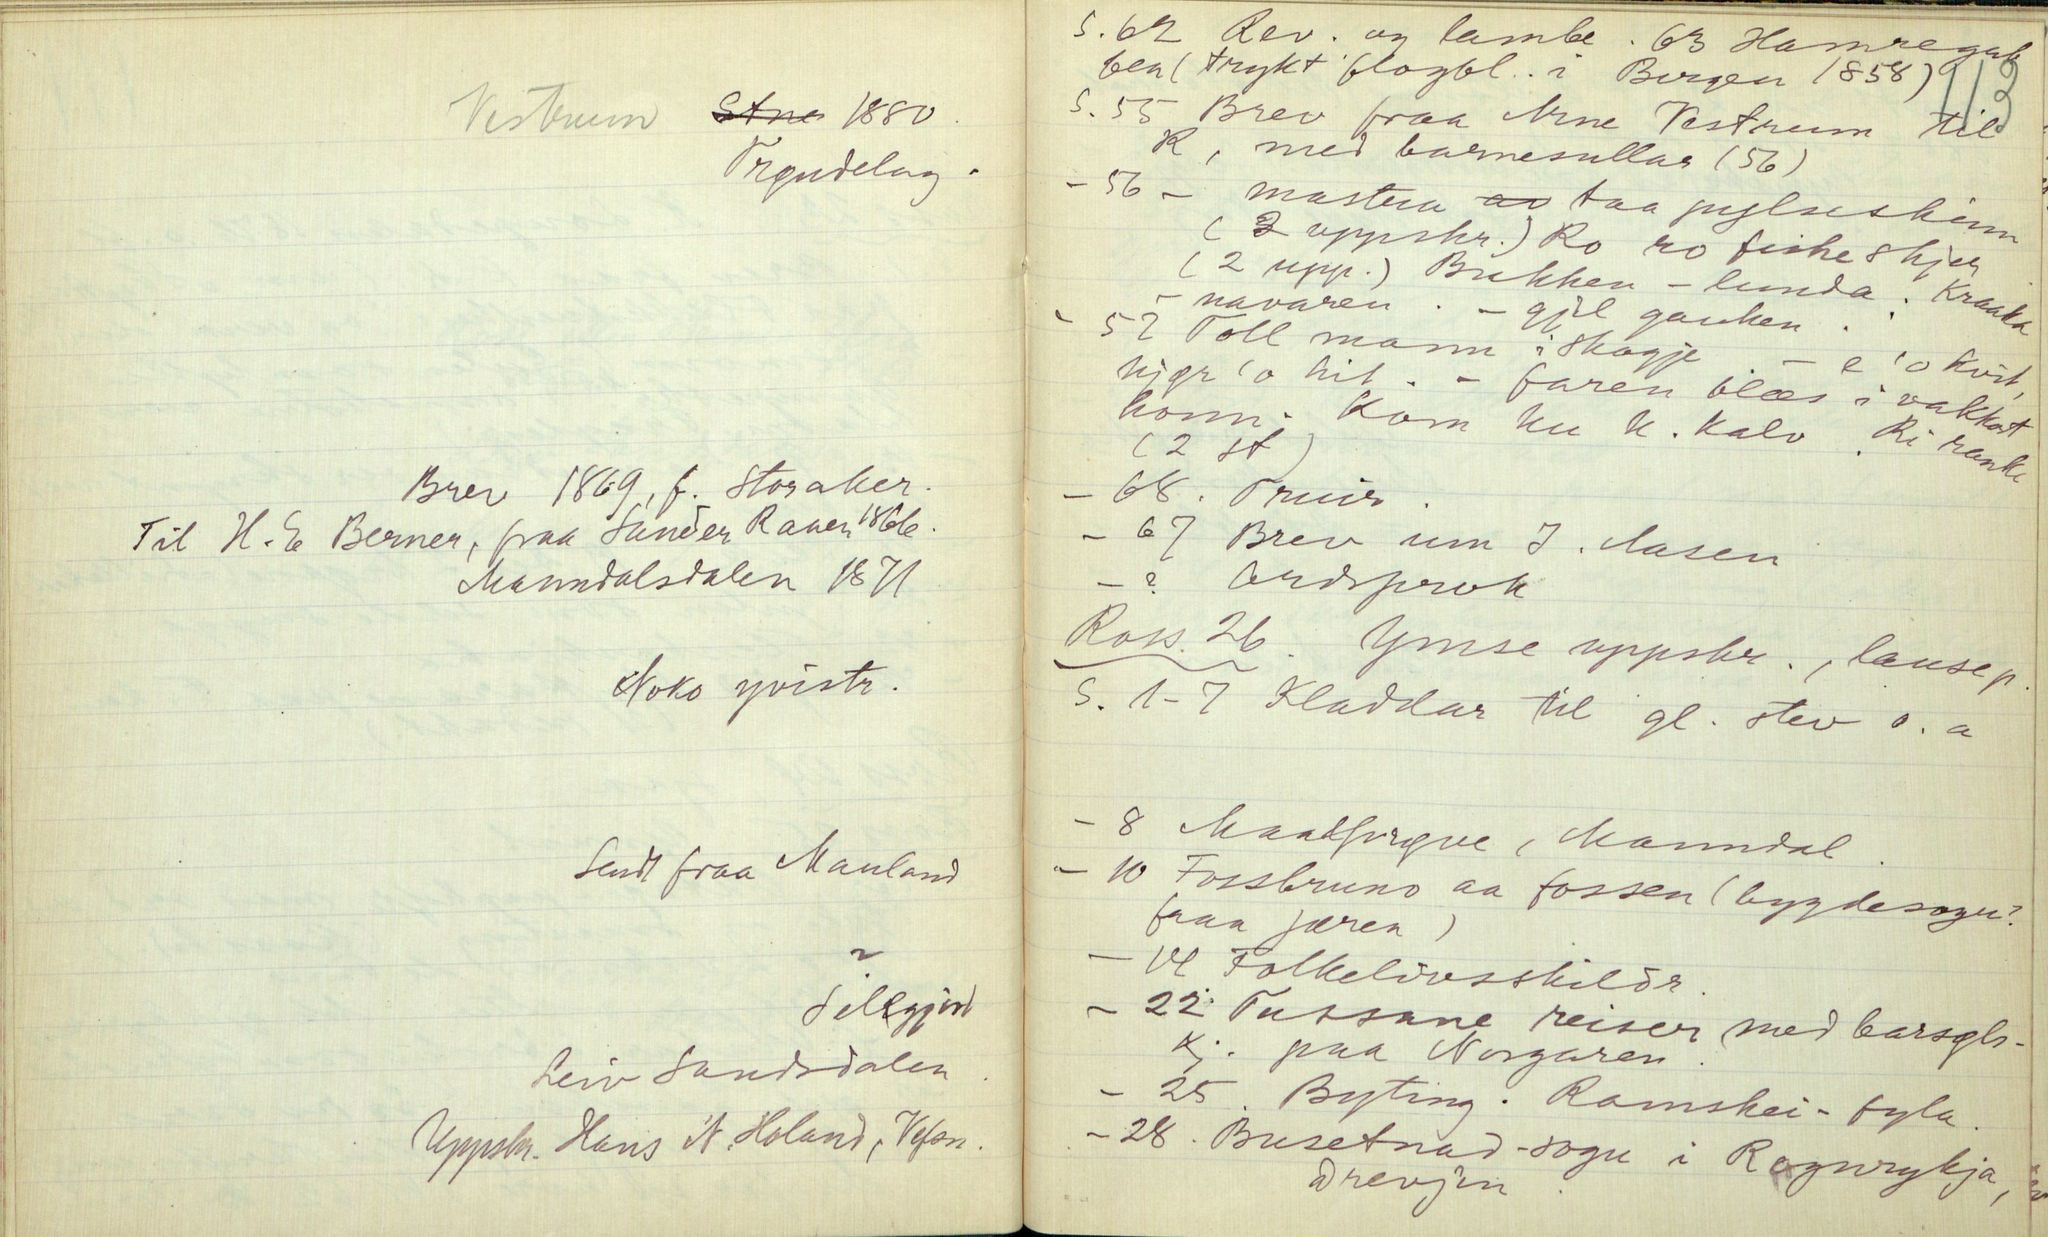 Vestrum Stne 1880.
Trøndelag.
Brev 1869, f. Storaker.
Til H. E Berner, fraa Sander Raaen 1866.
Manndalsdalen 1871
Noko yvistr.
Sendt fraa Mauland
Leiv Sandsdalen.
Uppskr. Hans N. Holand, Vefsn.
113
S. 62 Rev. og lambe. 63 Hamregub
ben (trykt flogbl. i Bergen 1858)
S. 55 Brev fraa Arne Vestrum til
R, med barnesullar (56)
- 56 - mastua av taa pylseskinn
(2 uppskr.) Ro ro fiskeskjer
(2 upp.) Bukken - lunda. Kraaka
- navaren. - gjel gauken.
- 57 Toll mann i skogje - e 'o kvit,
kjør 'o hit. - faren blæs i vakkart
horn. Kom ku k. kalv. Ri ranke
(2 st)
- 68. Truis.
- 67 Brev um I. Aasen
- ? Ordsprok
Ross. 26. Ymse uppskr., lause p.
S. 1-7 Kladdar til gl. stev o. a
- 8 Maalprøve, Manndal.
- 10 Fossbruno aa fossen (bygdesogu?
fraa Jæren)
- 14 Folkelivsskildr.
- 22 Tussane reiser med barsøls-
kj. paa Norgaren.
- 25. Byting. Ramshei-fyla.
- 28. Busetnad-sogu i Røynrykja,
Drevjen.